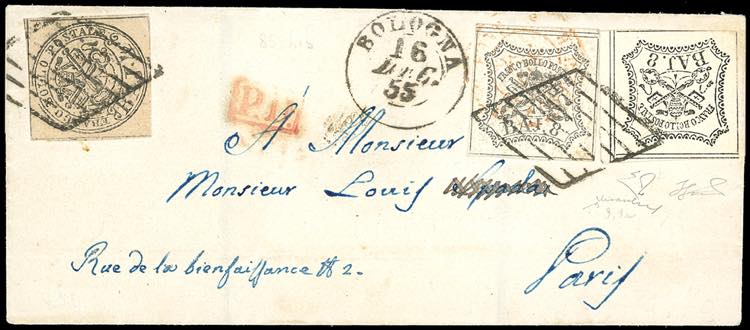 BOLLO POSTALE
BAJ
BOLOGNA
16
DEC.
55
FRANCO BOLLO POSTALE
BAJ. 8
FRANCO BOLLO POSTALE
BAJ. 8
P.D.
À Monsieur
Monsieur Louis
Rue de la bienfaisſance № 2.
Paris